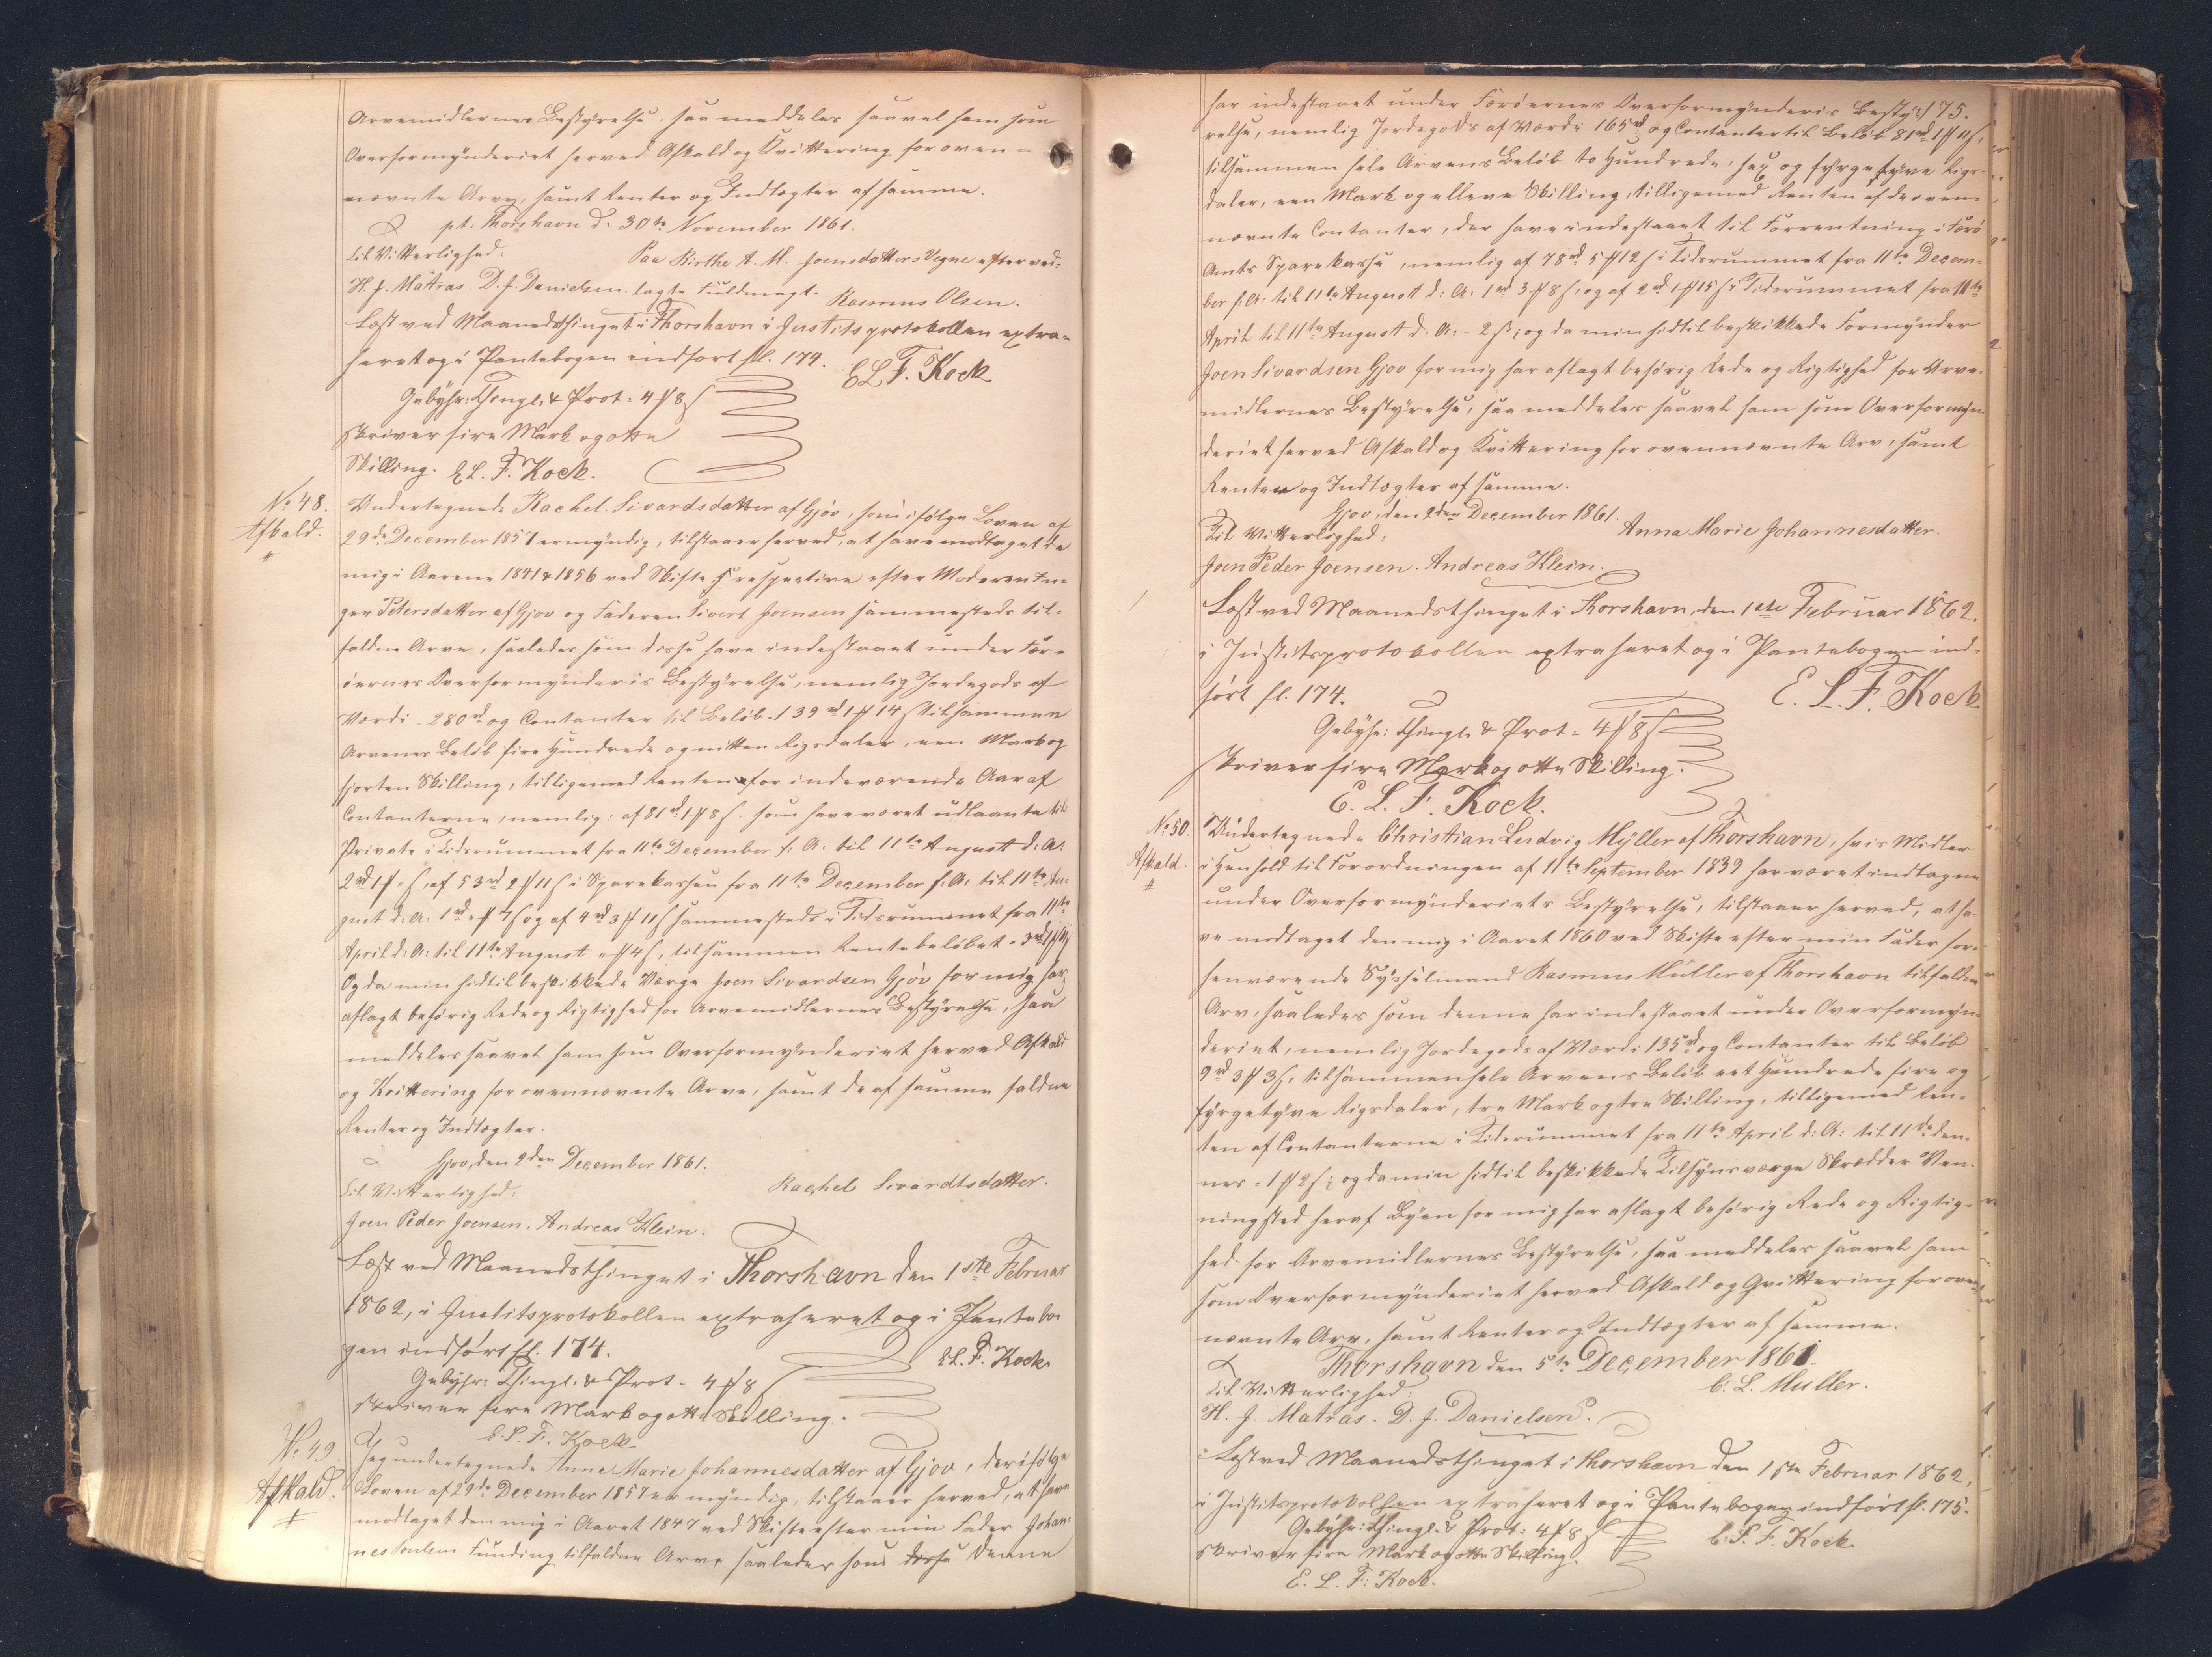 Arvemidlernes Bestÿrelse, saa meddeles saavel ham som
Overformÿnderiet herved Afkald og Kvittering for oven-
nævnte Arv, samt Renter og Indtægter af samme.
pt. Thorshavn d. 30te November 1861.
Til Vitterlighed: Paa Birthe A. M. Joensdatters Vegne efter ved-
H. J. Matras. D. J. Danielsen. lagte Fuldmagt. Rasmus Olsen.
Læst ved Maanedsthinget i Thorshavn i Justitsprotokollen extra-
heret og i Pantebogen indført fl. 174. E L F. Kock
Gebÿhr: Thingl. & Prot. = 4 ₰ 8 ß
skriver fire Mark og otte
Skilling. E L. F. Kock.
No 48. Undertegnede Rachel Sivardsdatter af Gjov, som ifølge Loven af
Afkald. 29de December 1857 er mÿndig, tilstaaer herved, at have modtaget de
mig i Aarene 1841 & 1856 ved Skifte respective efter Moderen In-
ger Petersdatter af Gjov og Faderen Sivert Joensen sammesteds til-
faldne Arve, saaledes som disse have indestaaet under Fær-
øernes Overformÿnderis Bestÿrelse, nemlig Jordegods af
Værdi - 280 rd og Contanter til Beløb - 139 rd 1 ₰ 14 ß tilsammen
Arvenes Beløb fire Hundrede og nitten Rigsdaler, een Mark og
fjorten Skilling, tilligemed Renten for indeværende Aar af
Contanterne, nemlig: af 81 rd 1 ₰ 8 ß som have været udlaante til
Private i Tidsrummet fra 11te December f. A. til 11te August d. A.
2 rd 1 ₰ - ß, af 53 rd 2 ₰ 11 ß i Sparekassen fra 11te December f. A. til 11te Au-
gust d. A. 1 rd - ₰ 7 ß og af 4 rd 3 ₰ 11 ß sammesteds i Tidsrummet fra 11te
April d. A. til 11te August - ₰ 4 ß, tilsammen Rentebeløbet - 3 rd
Og da min hidtil beskikkede Værge Joen Sivardsen Gjóv for mig har
aflagt behørig Rede og Rigtighed for Arvemidlernes Bestÿrelse, saa
meddeles saavel ham som Overformÿnderiet herved Afkald
og Kvittering for ovennævnte Arve, samt de af samme faldne
Renter og Indtægter.
Gjov, den 2den December 1861.
Til Vitterlighed: Rachel Sivardtsdatter.
Joen Peder Joensen. Andreas Klein.
Læst ved Maanedsthinget i Thorshavn den 1ste Februar
1862, i Justitsprotokollen extraheret og i Pantebo-
gen indført fl. 174. E L. F. Kock
Gebÿhr: Thingl. & Prot. - 4 ₰ 8 ß
skriver fire Mark og otte Skilling.
E. L. F. Kock
No 49. Jeg undertegnede Anne Marie Johannesdatter af Gjov, der ifølge
Afkald. Loven af 29de December 1857 er mÿndig, tilstaaer herved, at have
modtaget den mig i Aaret 1847 ved Skifte efter min Fader Johan-
nes Poulsen Funding tilfaldne Arv, saaledes som disse denne
175.
har indestaaet under Færøernes Overformÿnderis Bestÿ-
relse, nemlig Jordegods af Værdi 165 rd og Contanter til Beløb 81 rd 1 ₰ 11 ß,
tilsammen hele Arvens Beløb to Hundrede, sex og fÿrgetÿve Rigs-
daler, een Mark og elleve Skilling, tilligemed Renten af de oven-
nævnte Contanter, der have indestaaet til Forrentning i Færø
Amts Sparekasse, nemlig af 78 rd 5 ₰ 12 ß i Tidsrummet fra 11te Decem-
ber f. A. til 11te August d. A. 1 rd 3 ₰ 8 ß, og af 2 rd 1 ₰ 15 ß i Tidsrummet fra 11te
April til 11te August d. A. - 2 ß; og da min hidtil beskikkede Formÿnder
Joen Sivardsen Gjov for mig har aflagt behørig Rede og Rigtighed for Arve-
midlernes Bestÿrelse, saa meddeles saavel ham som Overformÿn-
deriet herved Afkald og Kvittering for ovennævnte Arv, samt
Renter og Indtægter af samme.
Gjov, den 2den December 1861.
Til Vitterlighed: Anna Marie Johannesdatter.
Joen Peder Joensen. Andreas Klein.
Læst ved Maanedsthinget i Thorshavn, den 1ste Februar 1862.
i Justitsprotokollen extraheret og i Pantebogen ind-
ført fl. 174. E. L. F. Kock
Gebÿhr: Thingl. & Prot. = 4 ₰ 8 ß
skriver fire Mark og otte Skilling.
E. L. F. Kock.
No 50. Undertegnede Christian Ludvig Mÿller af Thorshavn, hvis Midler
Afkald. i Henhold til Forordningen af 11te September 1839 har været indtagne
under Overformÿnderiets Bestÿrelse, tilstaaer herved, at ha-
ve modtaget den mig i Aaret 1860 ved Skifte efter min Fader for-
henværende Sÿsselmand Rasmus Müller af Thorshavn tilfaldne
Arv, saaledes som denne har indestaaet under Overformÿn-
deriet, nemlig Jordegods af Værdi 135 rd og Contanter til Beløb
9 rd 3 ₰ 3 ß, tilsammen hele Arvens Beløb eet Hundrede fire og
fÿrgetÿve Rigsdaler, tre Mark og tre Skilling, tilligemed Ren-
ten af Contanterne i Tidsrummet fra 11te April d. A. til 11te den-
nes - 1 ₰ 2 ß; og da min hidtil beskikkede Tilsÿnsværge Skrædder Ven-
ningsted heraf Bÿen for mig har aflagt behørig Rede og Rigtig-
hed for Arvemidlernes Bestÿrelse, saa meddeles saavel ham
som Overformÿnderiet herved Afkald og Qvittering for oven-
nævnte Arv, samt Renter og Indtægter af samme.
Thorshavn den 5te December 1861.
Til Vitterlighed: C. L. Muller.
H. J. Matras. D. J. Danielsen.
Læst ved Maanedsthinget i Thorshavn den 1ste Februar 1862,
i Justitsprotokollen extraheret og i Pantebogen indført fl. 175.
Gebÿhr: Thingl. & Prot: 4 ₰ 8 ß E. L. F. Kock.
skriver fire Mark og otte Skilling.
E. L. F. Kock.